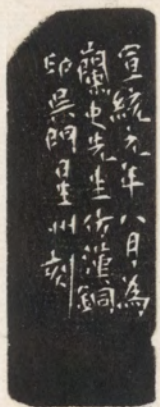 宣統元年八月為
蘭史先生仿漢銅
印吳門星州刻